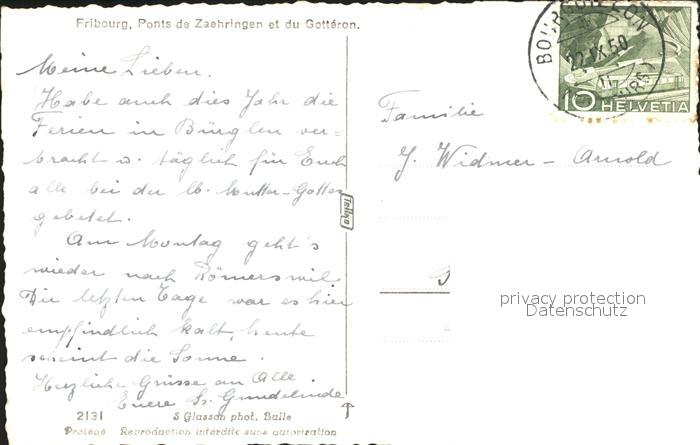 Fribourg, Ponts de Zaehringen et du Gottéron.
Meine Lieben.
Habe auch dies Jahr die
Ferien in Bürglen ver=
bracht u. täglich für Euch
alle bei der lb. Mutter-Gottes
gebetet.
Am Montag geht's
wieder nach Römerswil.
Die letzten Tage war es hier
empfindlich kalt, heute
scheint die Sonne.
Herzliche Grüsse an Alle
Eure Sr. Gundelinde
2131 S Glasson phot. Bulle
Protégé Reproduction interdite sans autorisation
BOURGUILLON
22.IX.50
10 HELVETIA
Familie
J. Widmer - Arnold
privacy protection
Datenschutz